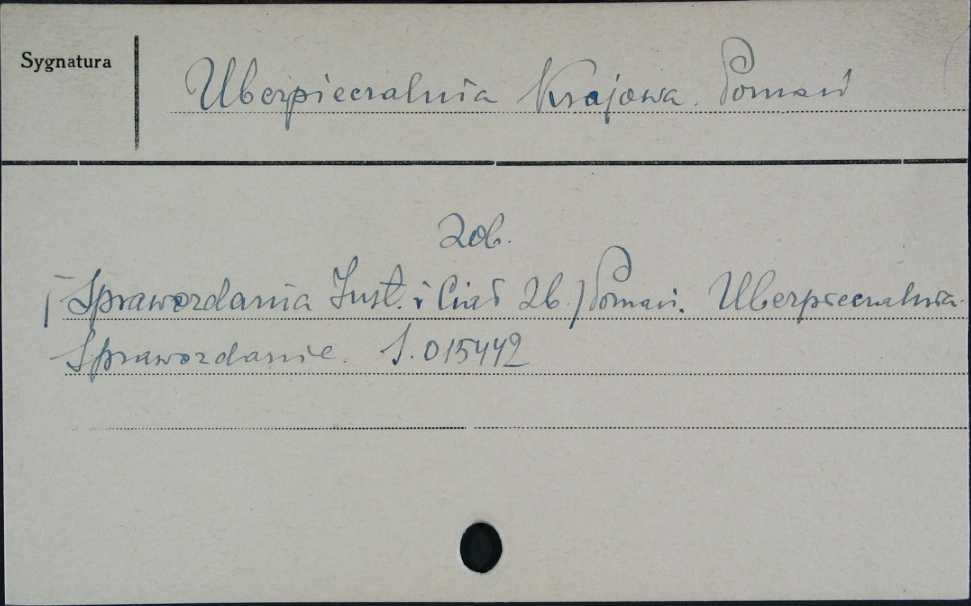 Sygnatura
Ubezpieczalnia Krajowa. Poznań
Zob.
[Sprawozdania Inst. i Ciał Zb.] Poznań. Ubezpieczalnia.
Sprawozdanie. S.015442